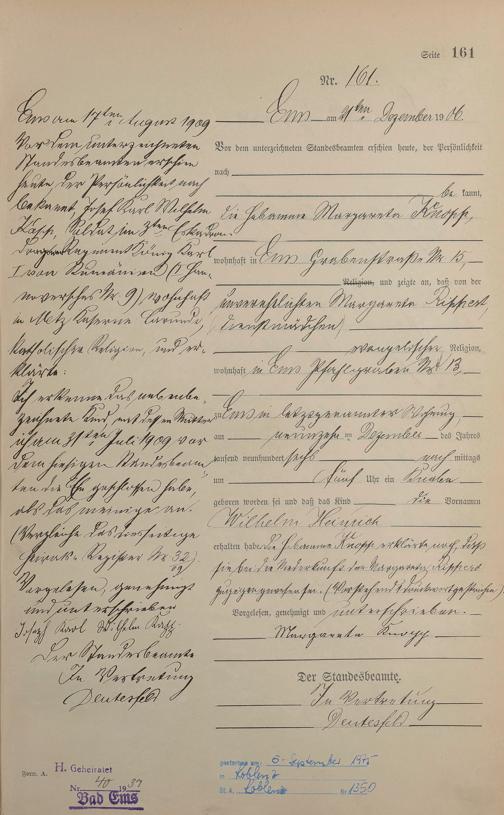 Seite 161
Nr. 161.
Ems am ten Dezember 1906
Vor dem unterzeichneten Standesbeamten erschien heute, der Persönlichkeit
nach
be kannt,
die Hebamme Margareta Knopp,
wohnhaft in Ems Grabenstraße Nr 15,
Religion, und zeigte an, daß von der
unverehelichten Margareta
Dienstmädchen,
evangelischer Religion,
wohnhaft in Ems Pfahlgraben Nr 13,
zu Ems in letztgenannter Wohnung,
am neunzehn ten Dezember des Jahres
tausend neunhundert sechs nach mittags
um fünf Uhr ein Knabe
geboren worden sei und daß das Kind die Vornamen
Wilhelm Heinrich
erhalten habe. Die Hebamme Knopp erklärte noch, daß
sie bei der Niederkunft der Margareta
zugegen gewesen sei.
Vorgelesen, genehmigt und unterschrieben.
Margareta Knopp
Der Standesbeamte.
In Vertretung
Ems am 17ten August 1909
Vor dem unterzeichneten
Standesbeamten erschien
heute, der Persönlichkeit nach
bekannt, Josef Karl Wilhelm
Soldat im 3ten Eskadron
Dragoner Regiment König Karl
I von Rumänien (1 Han-
noversches Nr. 9), wohnhaft
in Metz Kaserne
katholischer Religion, und er-
klärte:
Ich erkenne das nebenbe-
zeichnete Kind, mit dessen Mutter
ich am Juli 1909 vor
dem hiesigen Standesbeam-
ten die Ehe geschlossen habe,
als das meinige an.
(Vergleiche das diesseitige
Heirats-Register Nr 32)
Vorgelesen, genehmigt
und unterschrieben
Joseph Karl Wilhelm
Der Standesbeamte
In Vertretung
Form. A.
H. Geheiratet
Nr. 40 1937
Bad Ems
gestorben am: 6. September 1975
in Koblenz
St. A. Koblenz Nr 1350